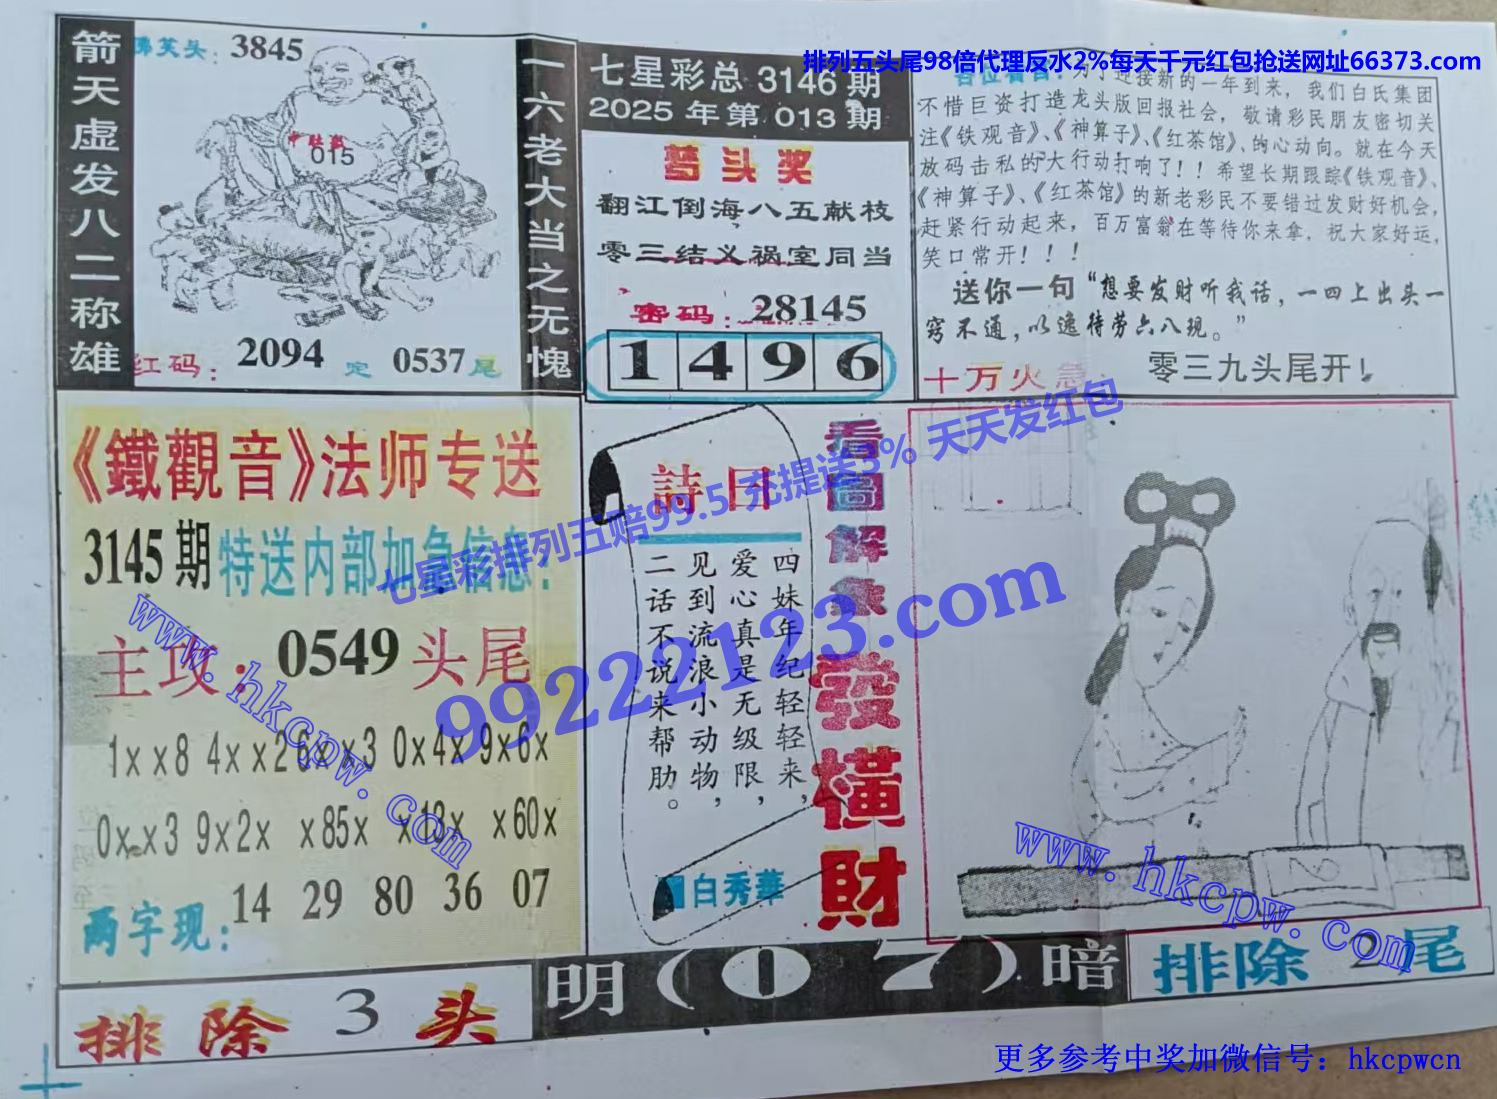 排列五头尾98倍代理反水2%每天千元红包抢送网址66373.com
箭天虚发八二称雄
佛笑头：3845
中肚藏
015
红码：2094 定 0537尾
一六老大当之无愧
七星彩总3146期
2025年第013期
梦头奖
翻江倒海八五献枝
零三结义祸室同当
密码：28145
1 4 9 6
各位看官：为了迎接新的一年到来，我们白氏集团
不惜巨资打造龙头版回报社会，敬请彩民朋友密切关
注《铁观音》、《神算子》、《红茶馆》、的心动向。就在今天
放码击私的大行动打响了！！希望长期跟踪《铁观音》、
《神算子》、《红茶馆》的新老彩民不要错过发财好机会，
赶紧行动起来，百万富翁在等待你来拿，祝大家好运，
笑口常开！！！
送你一句“想要发财听我话，一四上出头一
窍不通，以逸待劳六八现。”
十万火急：零三九头尾开！
《鐵觀音》法师专送
3145期 特送内部加急信息：
主攻：0549头尾
1xx8 4xx2 6xx3 0x4x 9x6x
0xx3 9x2x x85x x13x x60x
两字现：14 29 80 36 07
詩曰
四妹年纪轻轻来，
爱心真是无级限，
见到流浪小动物，
二话不说来帮肋。
白秀華
看圖解象
發橫財
排除 3 头
明(07)暗
排除 2 尾
七星彩排列五赔99.5 充提送3% 天天发红包
99222123.com
www.hkcpw.com
www.hkcpw.com
更多参考中奖加微信号：hkcpwcn